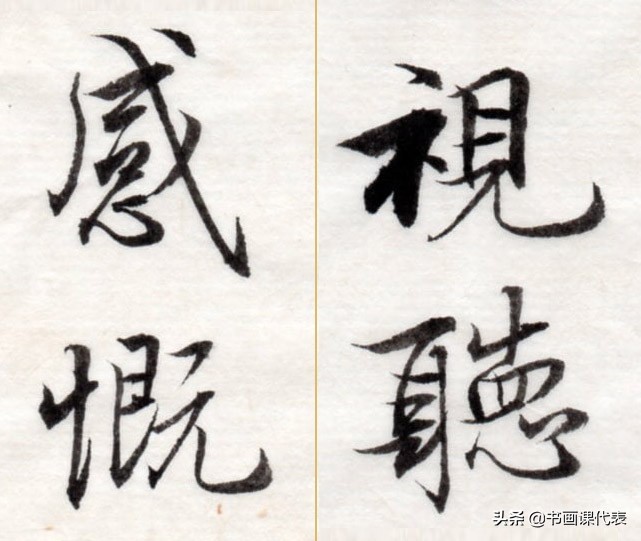 視聽
感慨
头条 @书画课代表